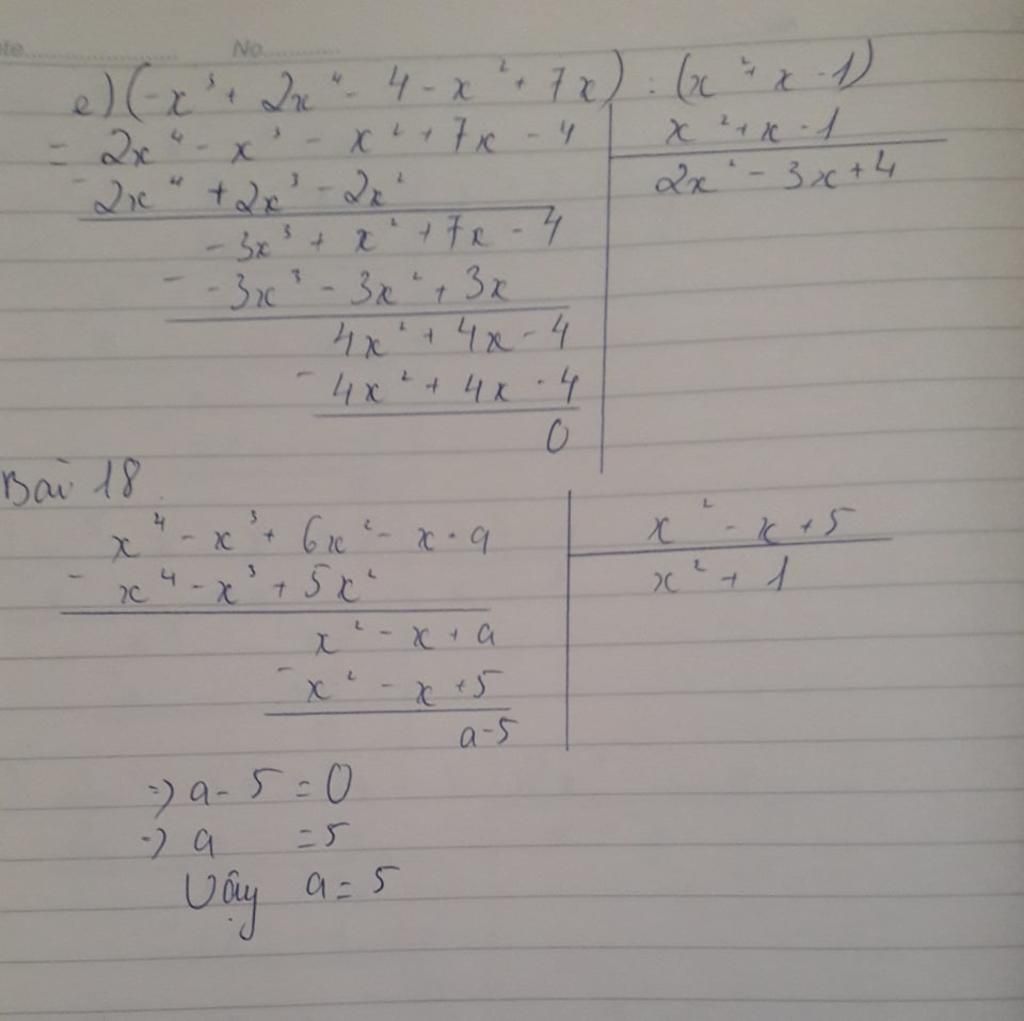 No
e) (-x³ + 2x⁴ - 4 - x² + 7x) : (x² + x - 1)
= 2x⁴ - x³ - x² + 7x - 4 | x² + x - 1
- 2x⁴ + 2x³ - 2x² | 2x² - 3x + 4
-3x³ + x² + 7x - 4
- -3x³ - 3x² + 3x
4x² + 4x - 4
- 4x² + 4x - 4
0
Bài 18
x⁴ - x³ + 6x² - x - a | x² - x + 5
- x⁴ - x³ + 5x² | x² + 1
x² - x + a
- x² - x + 5
a - 5
=> a - 5 = 0
=> a = 5
Vậy a = 5